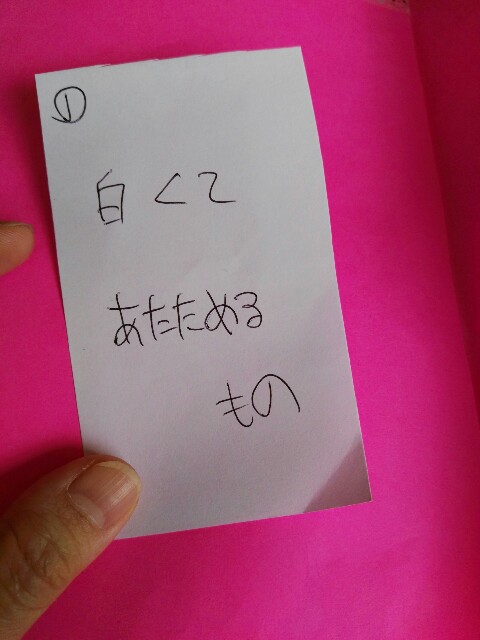 ①
白くて
あたためる
もの